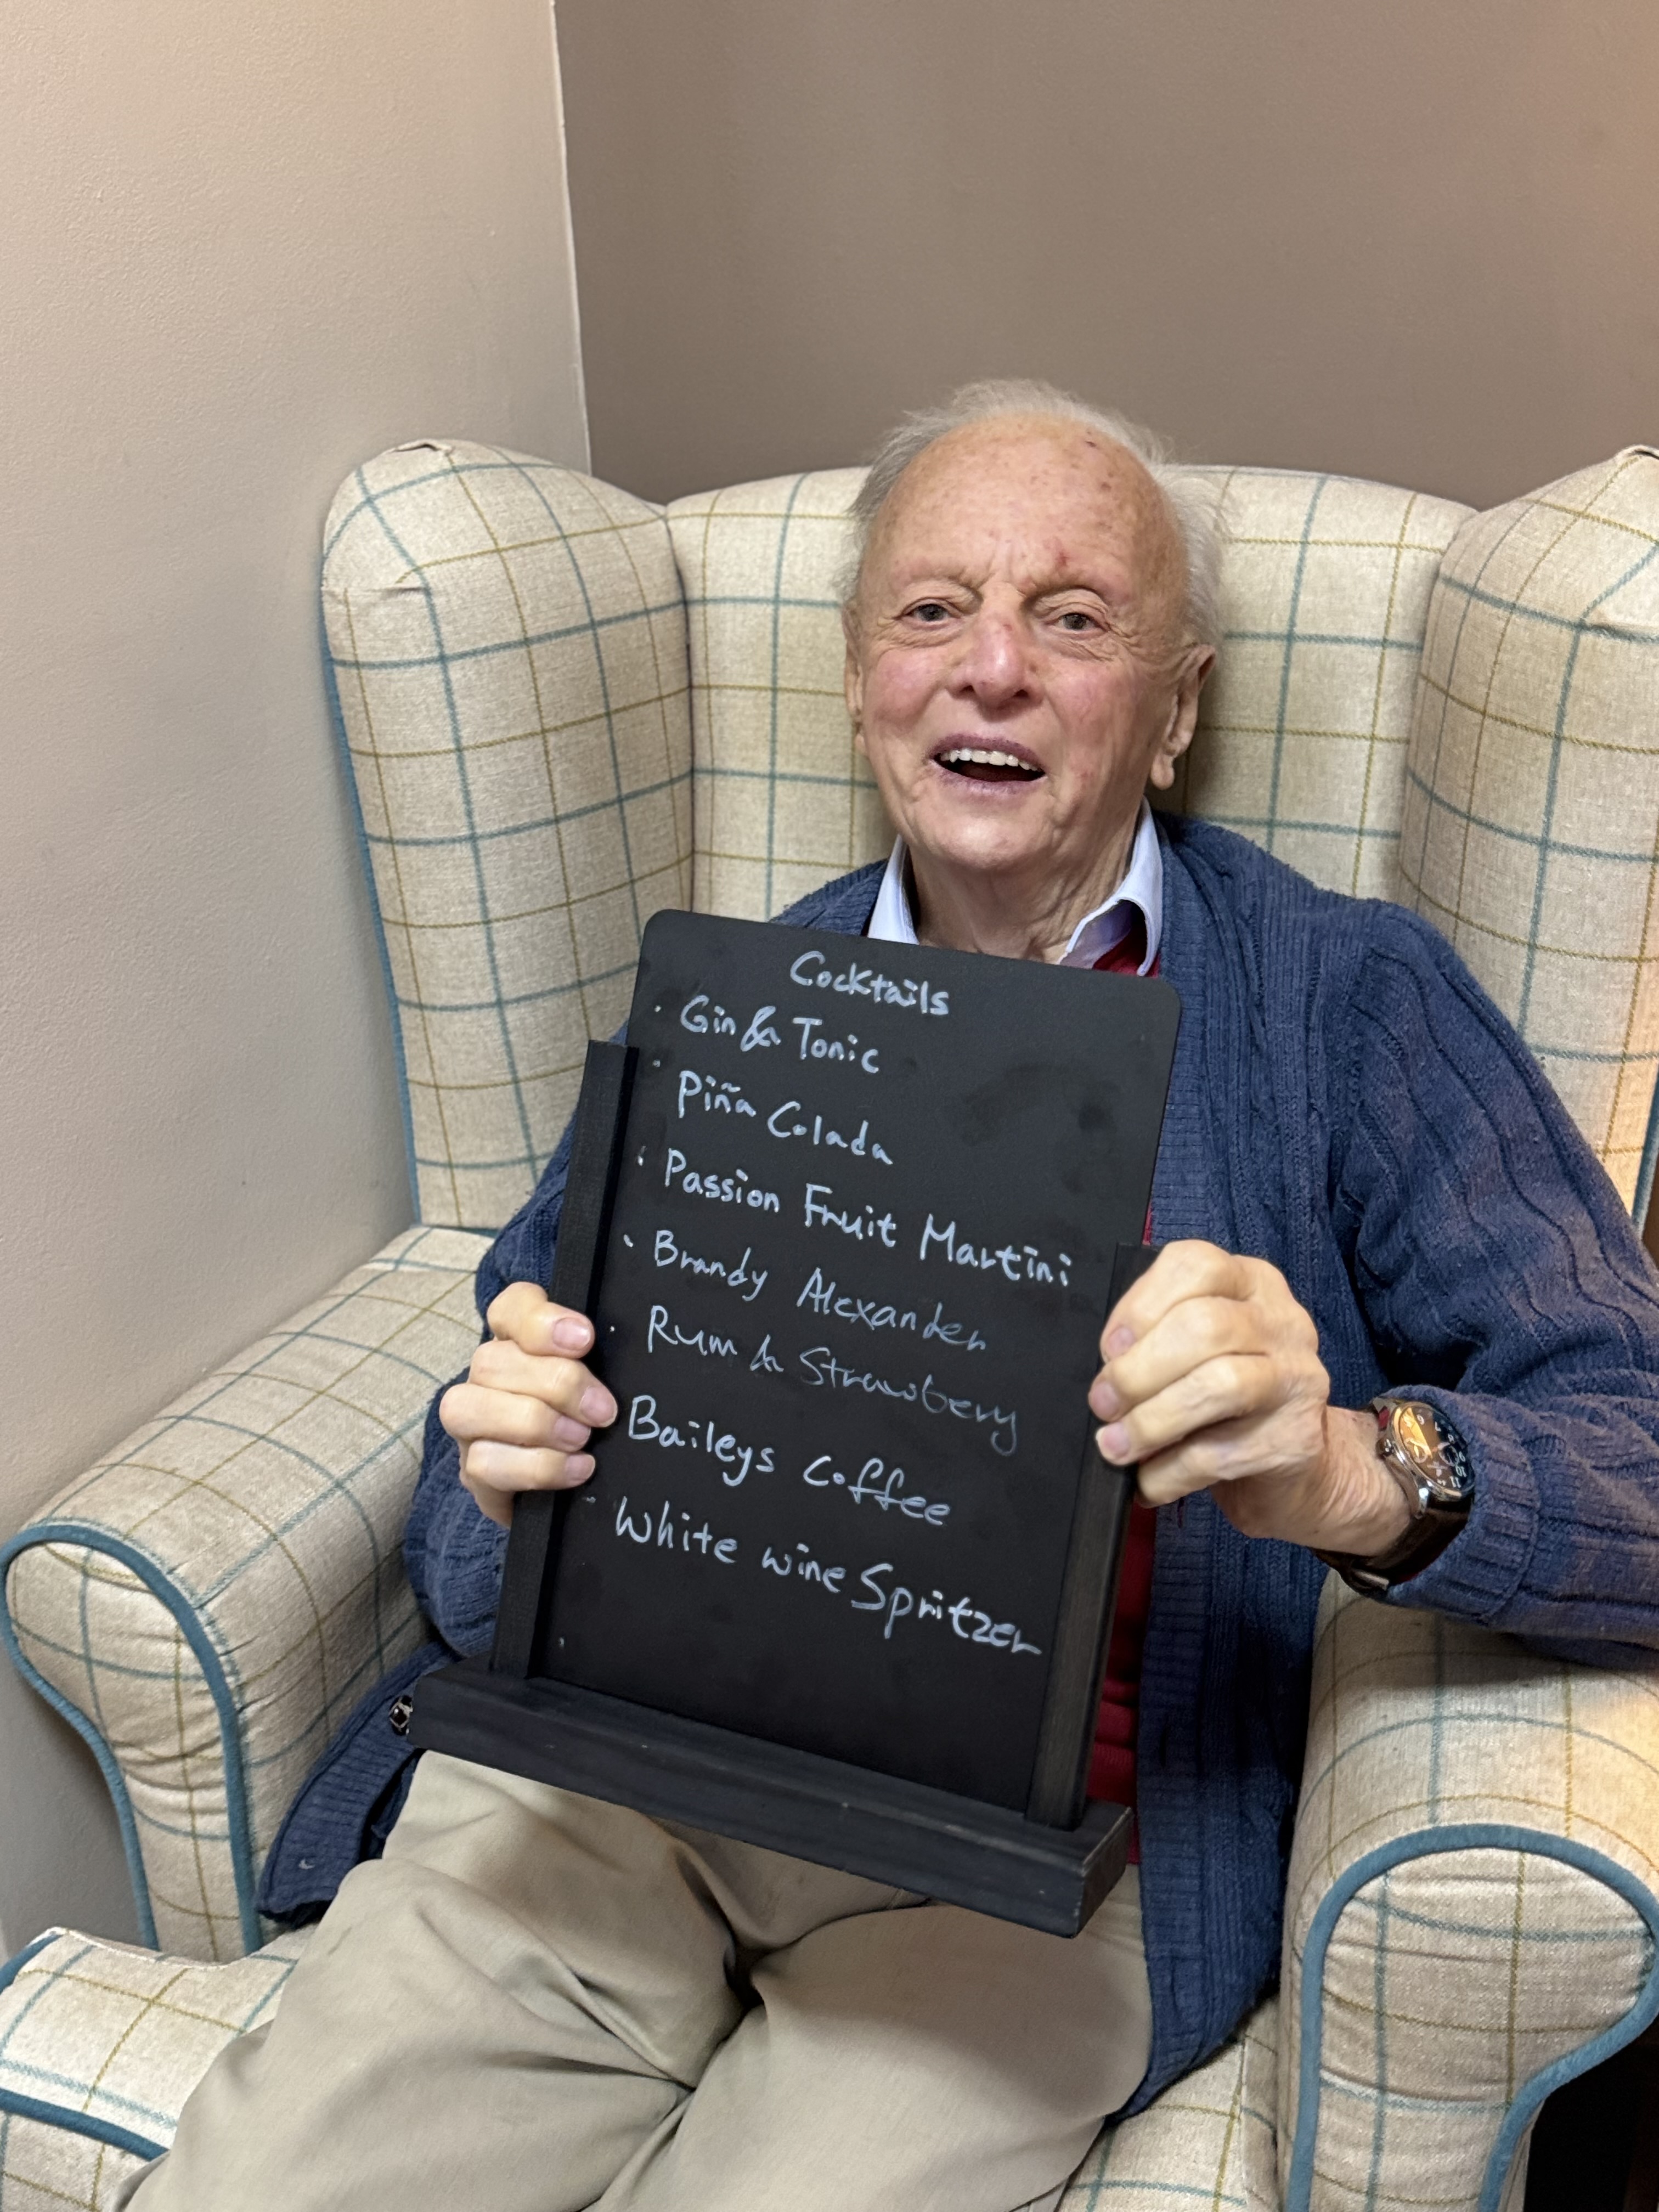 Cocktails
· Gin & Tonic
· Piña Colada
· Passion Fruit Martini
· Brandy Alexander
· Rum & Strawbery
Baileys Coffee
- White wine Spritzer